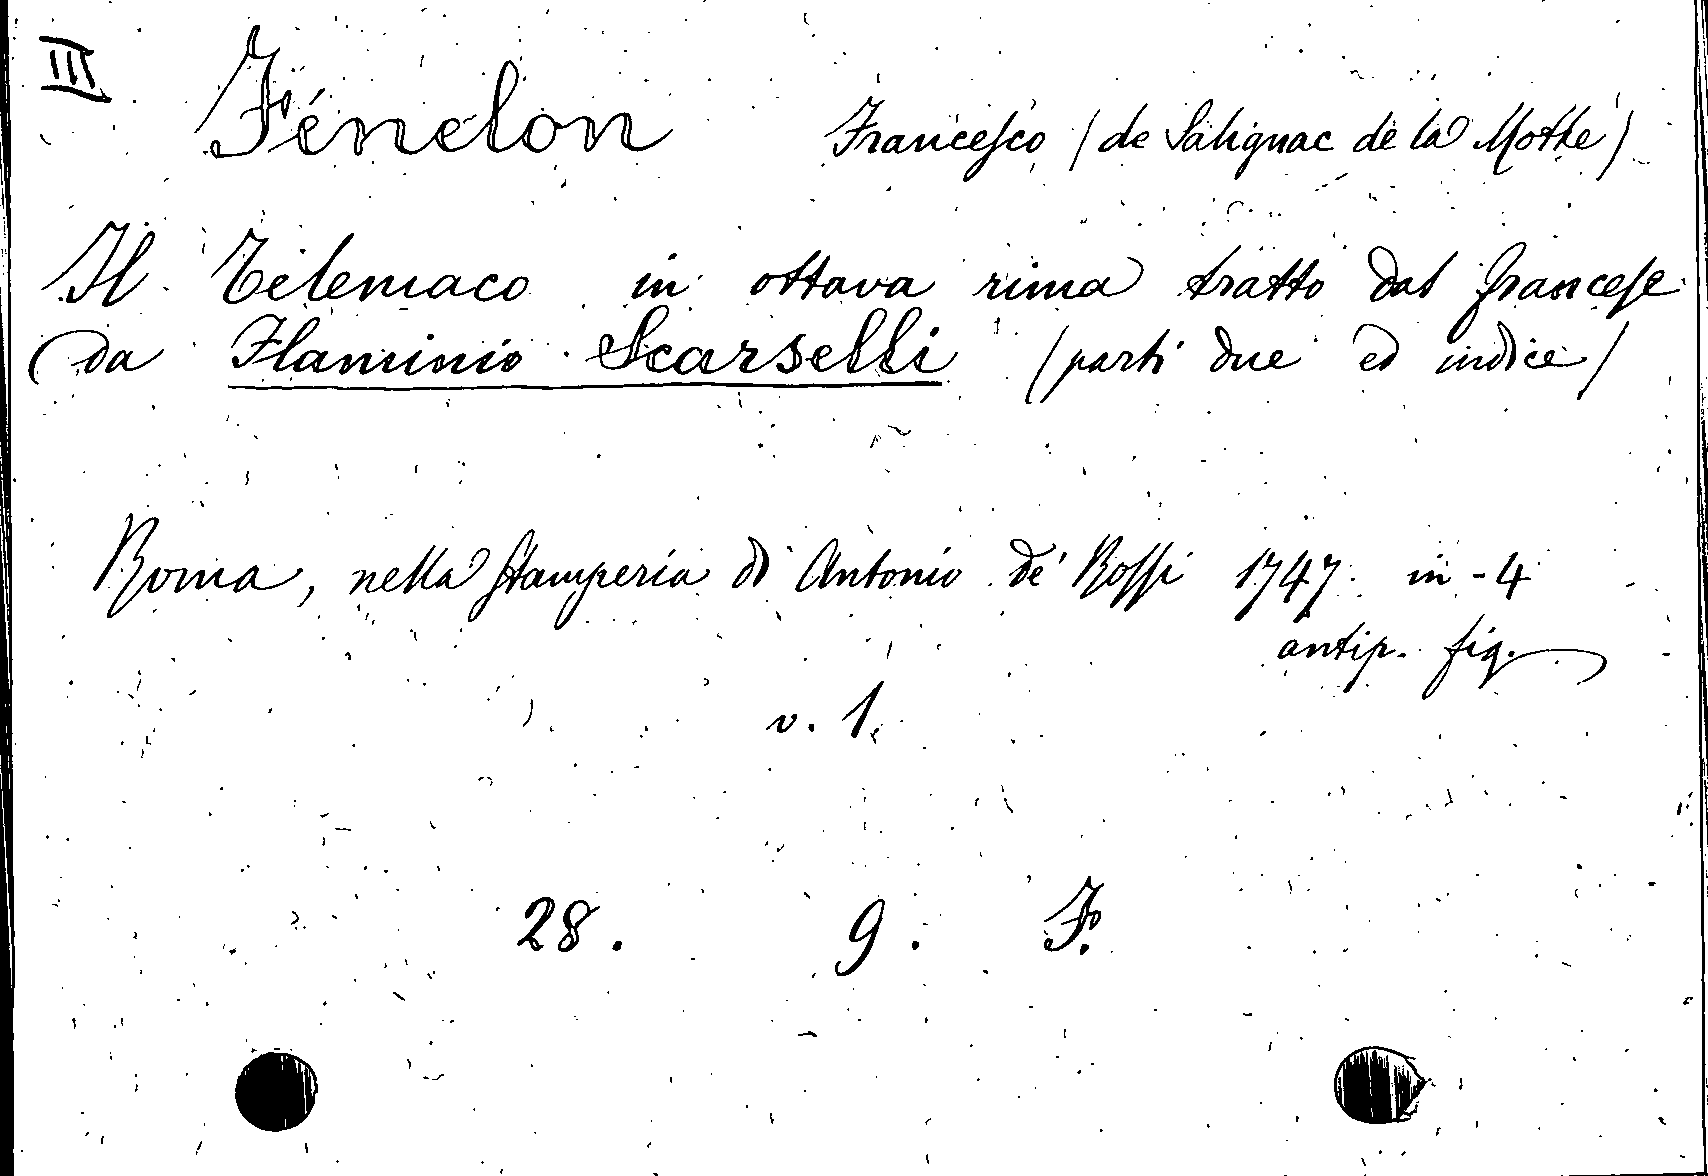 III Fénelon Francesco (de Salignac de la Mothe)
Il Telemaco in ottava rima tratto dal francese
(da Flaminio Scarselli (parti due ed indice)
Roma, nella stamperia di Antonio de' Rossi 1747. in-4
antip. fig.
v. 1.
28. 9. F.